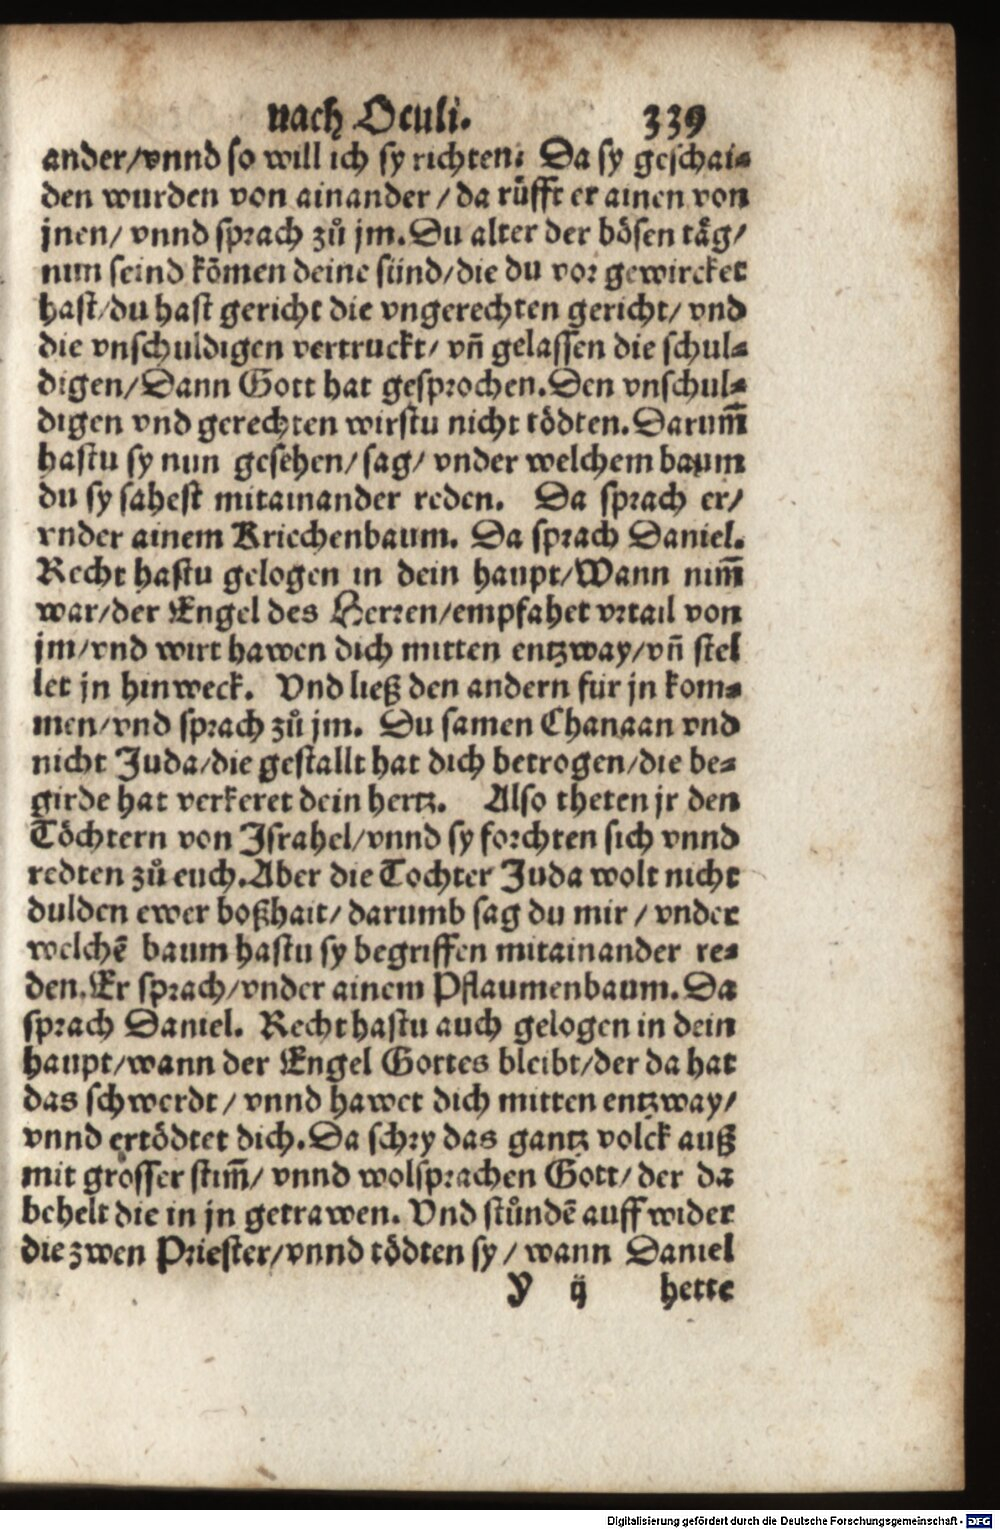 nach Oculi. 339
ander/vnnd so will ich sy richten: Da sy geschai⸗
den wurden von ainander / da rüfft er ainen von
jnen/ vnnd sprach zů jm. Du alter der bösen täg/
nun seind kōmen deine sünd/die du vor gewircket
hast/du hast gericht die vngerechten gericht/ vnd
die vnschuldigen vertruckt/ vñ gelassen die schul⸗
digen/Dann Gott hat gesprochen. Den vnschul⸗
digen vnd gerechten wirstu nicht tödten. Darum̄
hastu sy nun gesehen/ sag/ vnder welchem baum
du sy sahest mitainander reden. Da sprach er/
vnder ainem Kriechenbaum. Da sprach Daniel.
Recht hastu gelogen in dein haupt/Wann nim̄
war/der Engel des Herren/empfahet vrtail von
jm/vnd wirt hawen dich mitten entzway/vñ stel
let jn hinweck. Vnd ließ den andern für jn kom⸗
men/vnd sprach zů jm. Du samen Chanaan vnd
nicht Juda/die gestallt hat dich betrogen/die be⸗
girde hat verkeret dein hertz. Also theten jr den
Töchtern von Israhel/vnnd sy forchten sich vnnd
redten zů euch. Aber die Tochter Juda wolt nicht
dulden ewer boßhait/ darumb sag du mir / vnder
welchē baum hastu sy begriffen mitainander re⸗
den. Er sprach/vnder ainem Pflaumenbaum. Da
sprach Daniel. Recht hastu auch gelogen in dein
haupt/wann der Engel Gottes bleibt/der da hat
das schwerdt / vnnd hawet dich mitten entzway/
vnnd ertödtet dich. Da schry das gantz volck auß
mit grosser stim̄/ vnnd wolsprachen Gott/ der da
behelt die in jn getrawen. Vnd stůndē auff wider
die zwen Priester/vnnd tödten sy / wann Daniel
Y ij hette
Digitalisierung gefördert durch die Deutsche Forschungsgemeinschaft - DFG